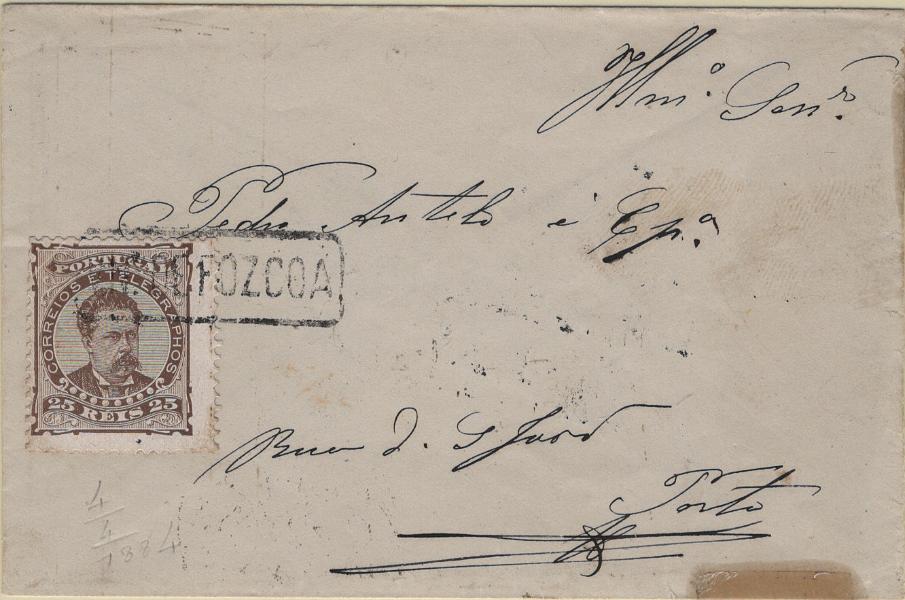 Illmº. Senr.
Pedro Antelo e Cpª.
FOZCOA
PORTUGAL
CORREIOS E TELEGRAPHOS
25 REIS 25
Rua d. S João
Porto
4
4
1884